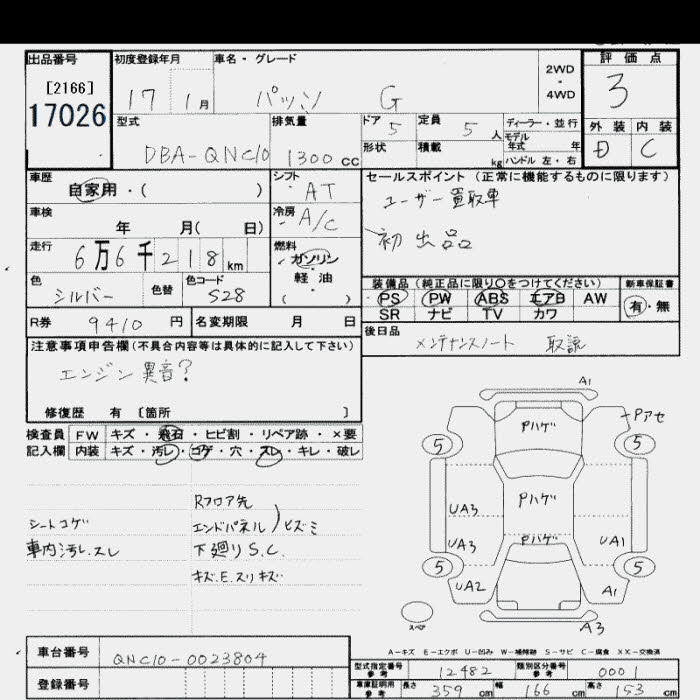 出品番号 初度登録年月 車名・グレード 2WD・4WD 評価点
[2166] 17026
17 1月 パッソ G 3
型式 排気量 ドア 5 定員 5人 ディーラー・並行 外装 内装
DBA-QNC10 1300cc 形状 積載 kg モデル年式 年 ハンドル 左・右 D C
車歴 シフト セールスポイント (正常に機能するものに限ります)
自家用・( ) AT ユーザー買取車
車検 冷房 初出品
年 月( 日) A/C
走行 燃料
6万6千218km ガソリン
色 色替 色コード 軽油 装備品 (純正品に限り○をつけてください) 新車保証書
シルバー S28 ( ) PS PW ABS エアB AW 有・無
SR ナビ TV カワ
R券 9410円 名変期限 月 日 後日品
メンテナンスノート 取説
注意事項申告欄 (不具合内容等は具体的に記入して下さい)
エンジン異音?
修復歴 有 〔箇所 〕
検査員 FW キズ・飛石・ヒビ割・リペア跡・×要
記入欄 内装 キズ・汚レ・コゲ・穴・スレ・キレ・破レ
Rフロア先
シートコゲ エンドパネル)ヒズミ
車内汚レ.スレ 下廻りS.C.
キズ.E.スリキズ
A1
Pハゲ Pアセ
5 5
Pハゲ
UA3
UA3 Pハゲ UA1
5 5
UA2 A1
スペア A3
A-キズ E-エクボ U-凹み W-補修跡 S-サビ C-腐食 XX-交換済
車台番号 QNC10-0023804
登録番号
型式指定番号 参考 12482 類別区分番号 参考 0001
車庫証明用 参考 長さ 359cm 幅 166cm 高さ 153cm